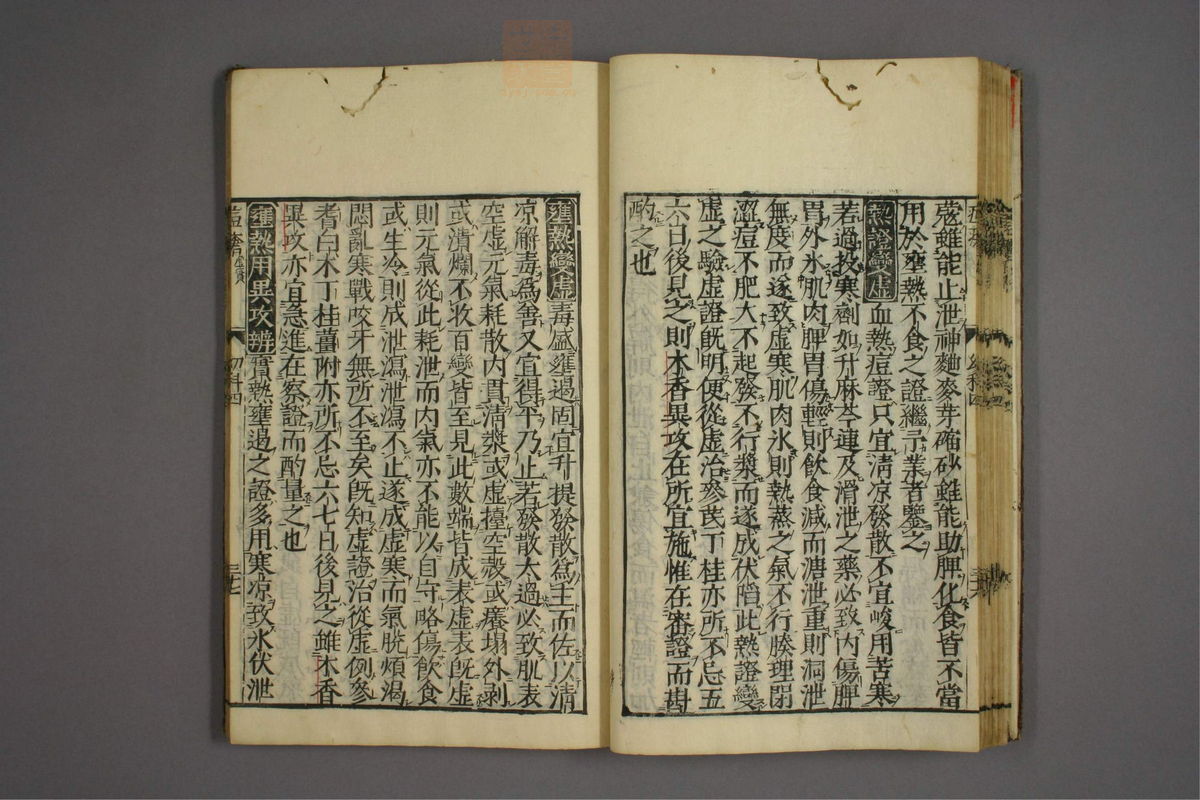 蔻雖能止泄神麯麥芽硇砂雖能助脾化食皆不當
用於壅熱不食之證繼予業者鑒之
熱證變虛 血熱痘證只宜清凉發散不宜峻用苦寒
若過投寒劑如升麻芩連及滑泄之藥必致內傷脾
胃外氷肌肉脾胃傷輕則飲食減而溏泄重則洞泄
無度而遂致虛寒肌肉氷則熱蒸之氣不行腠理閉
澀痘不肥大不起發不行漿而遂成伏陷此熱證變
虛之驗虛證既明便從虛治參芪丁桂亦所不忌五
六日後見之則木香異攻在所宜施惟在審證而斟
酌之也
壅熱變虛 毒盛壅遏固宜升提發散爲主而佐以清
凉解毒爲善又宜得平乃止若發散太過必致肌表
空虛元氣耗散內貫清漿或虛擡空殼或癢塌外剥
或潰爛不收百變皆至見此數端皆成表虛表既虛
則元氣從此耗泄而內氣亦不能以自守略傷飲食
或生冷則成泄瀉泄瀉不止遂成虛寒而氣脱煩渴
悶亂寒戰咬牙無所不至矣既知虛證治從虛例參
耆白木丁桂薑附亦所不忌六七日後見之雖木香
異攻亦宜急進在察證而酌量之也
壅熱用異攻辨 實熱壅遏之證多用寒凉致氷伏泄
幼科四
三十七